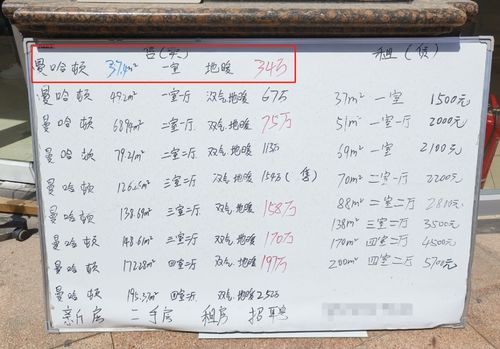 售(买) 租(售)
曼哈顿 37.4m² 一室 地暖 34万
曼哈顿 49.2m² 一室一厅 双气地暖 67万 37m² 一室 1500元
曼哈顿 68.99m² 二室一厅 双气地暖 75万 51m² 一室一厅 2000元
曼哈顿 79.21m² 二室二厅 双气地暖 113万 69m² 一室 2100元
曼哈顿 三室二厅 双气地暖 (售) 70m² 二室一厅 2200元
曼哈顿 138.69m² 三室二厅 双气地暖 158万 88m² 二室二厅 2800元
138m² 三室二厅 3500元
曼哈顿 148.61m² 三室二厅 双气地暖 170万 170m² 四室二厅 4500元
曼哈顿 172.28m² 四室二厅 双气地暖 197万 200m² 四室二厅 5700元
曼哈顿 195.37m² 四室二厅 双气地暖
新房 二手房 租房 招聘